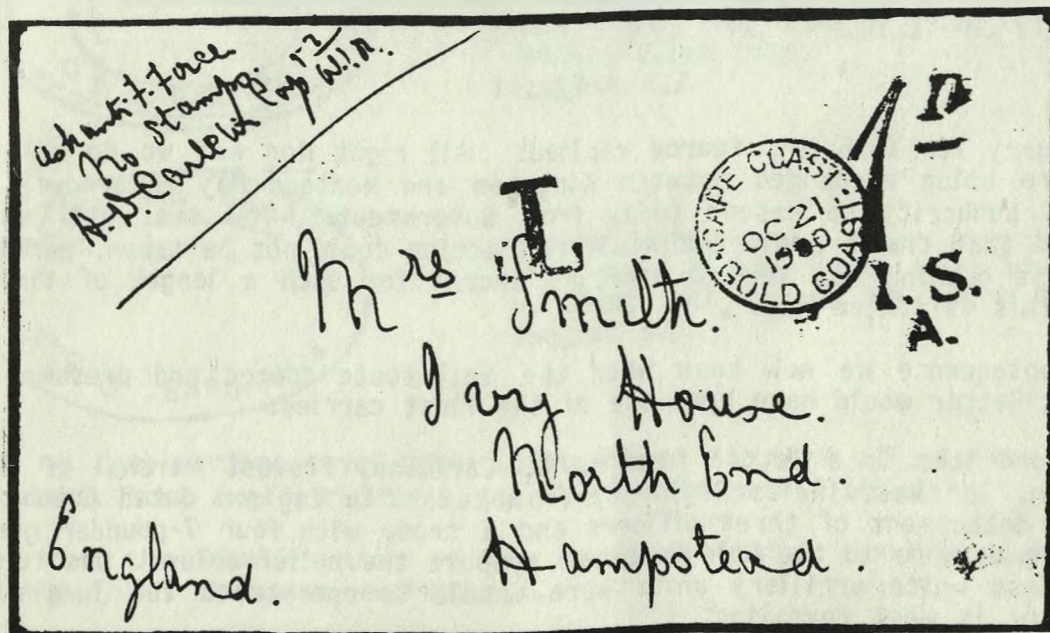 Ashanti F. Force
No Stamps
W.I.R.
T
CAPE COAST
OC 21
1900
GOLD COAST
P
I. S.
A.
Mrs Smith.
Ivy House.
North End.
Hampstead.
England.